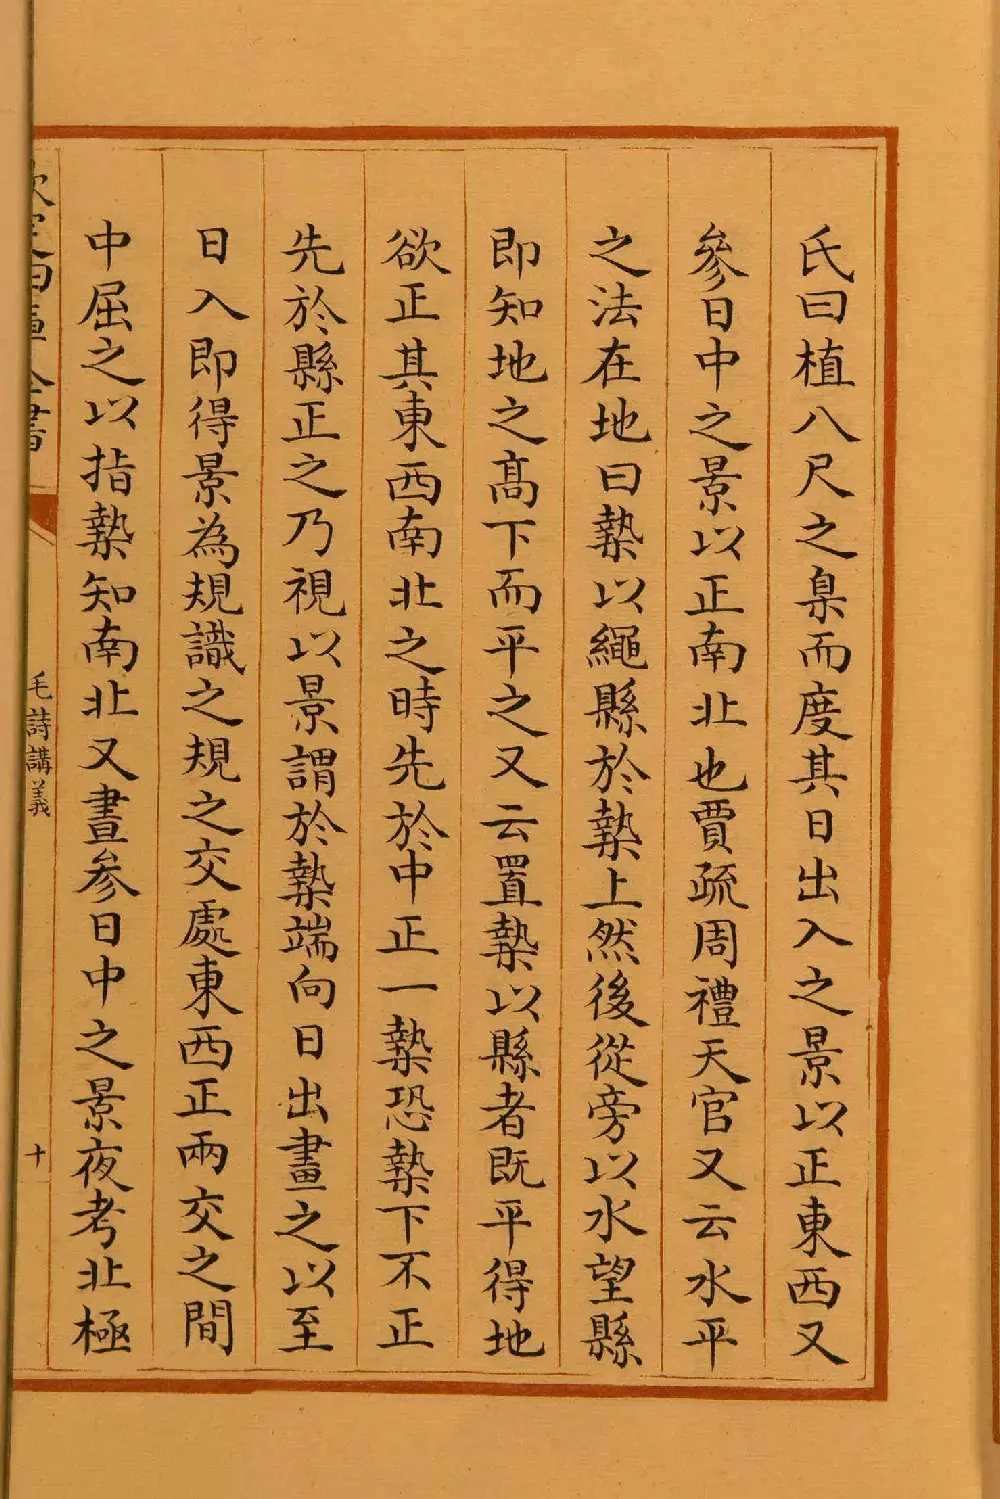 氏曰植八尺之臬而度其日出入之景以正東西又
參日中之景以正南北也賈疏周禮天官又云水平
之法在地曰槷以繩縣於槷上然後從旁以水望縣
即知地之髙下而平之又云置槷以縣者既平得地
欲正其東西南北之時先於中正一槷恐槷下不正
先於縣正之乃視以景謂於槷端向日出畫之以至
日入即得景為規識之規之交處東西正兩交之間
中屈之以指槷知南北又晝参日中之景夜考北極
欽定四庫全書
毛詩講義
十